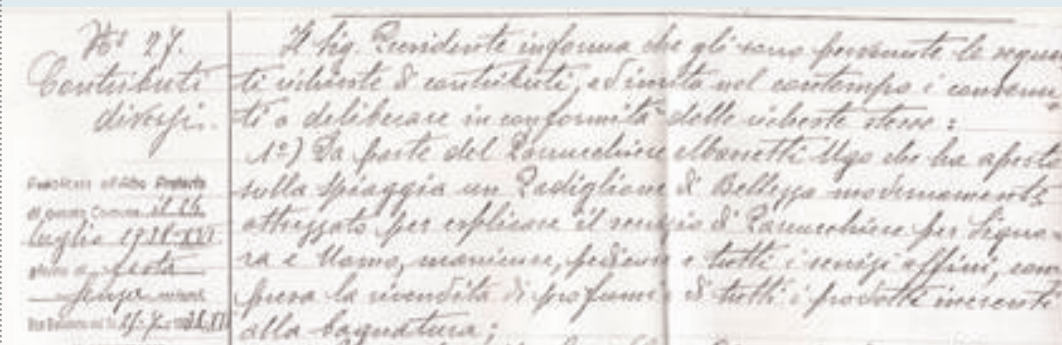 N° 27.
Contributi
diversi.
Pubblicato all'Albo Pretorio
di questo Comune il 24
luglio 1938-XVI
giorno festa
senza
Il Sig. Presidente informa che gli sono pervenute le seguen
ti richieste di contributi, ed invita nel contempo i convenu
ti a deliberare in conformità delle richieste stesse:
1°) Da parte del Parrucchiere Ugo che ha aperto
sulla spiaggia un Padiglione di Bellezza modernamente
attrezzato per esplicare il servizio di Parrucchiere per Signo
ra e Uomo, manicure, pedicure e tutti i servizi affini, com
presa la rivendita di profumi e di tutti i prodotti inerenti
alla bagnatura;